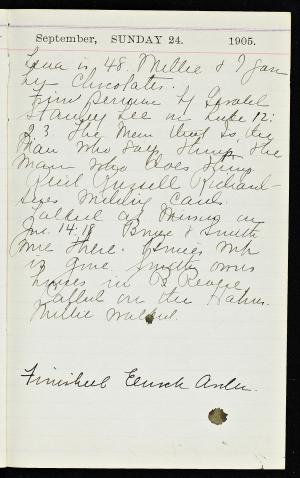 September, SUNDAY 24. 1905.
Lena is 48. Millie & I gave
her Chocolates.
Fine Sermon by Gerald
Stanley Lee on Luke 12:
23. The Man that Is, the
Man who says things, the
Man who does things.
Rec'd Russell Richard-
son's Wedding cards.
Talked at Mission on
Jno. 14:18. Bryce & Smith
were there.
is gone. Smith owns
houses in
Called on the Hahns.
Millie walked.
Finished Enoch Arden.